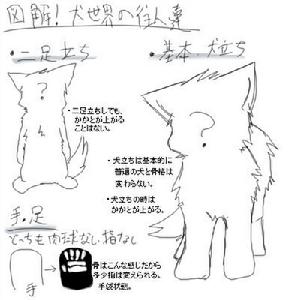 図解!犬世界の住人達
・二足立ち
・基本・犬立ち
?
?
・二足立ちしても、
かかとが上がる
ことはない。
・犬立ちは基本的に
普通の犬と骨格は
変わらない。
・犬立ちの時は
かかとが上がる。
手・足
どっちも肉球なし・指なし
手
骨はこんな感じだから
多少指は変えられる。
手袋状態。